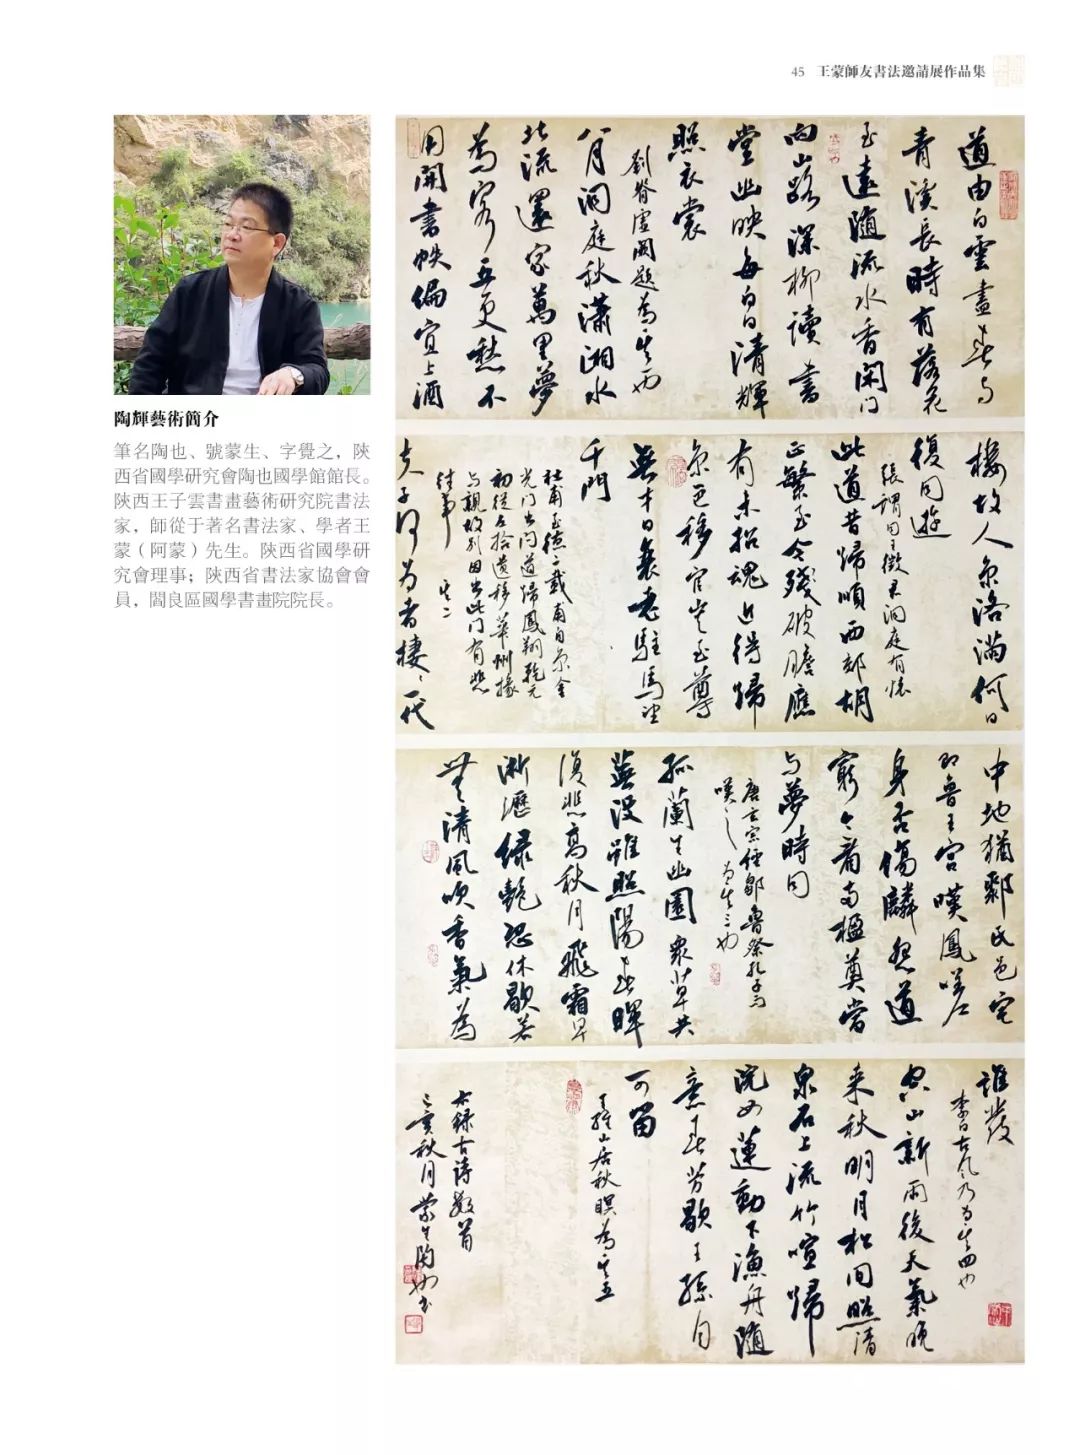 45 王蒙師友書法邀請展作品集
陶輝藝術簡介
筆名陶也、號蒙生、字覺之，陝
西省國學研究會陶也國學館館長。
陝西王子雲書畫藝術研究院書法
家，師從于著名書法家、學者王
蒙（阿蒙）先生。陝西省國學研
究會理事；陝西省書法家協會會
員，閻良區國學書畫院院長。
道由白雲盡春与
青溪長時有落花
至遠隨流水香閑门
向山路深柳讀書
堂幽映每白日清輝
照衣裳
劉脊虛闕題為其一也
八月洞庭秋瀟湘水
北流還家萬里夢
為客五更愁不
用開書帙偏宜上酒
樓故人京洛滿何日
復同遊
張謂同王徵君洞庭有懷
此道昔歸順西郊胡
正繁至今殘破膽應
有未招魂近得歸
京邑移官豈至尊
無才日衰老駐馬望
千門
杜甫至德二載甫自京金
光门出间道歸鳳翔乾元
初從左拾遺移華州掾
与親故別因出此门有悲
往事 其二
夫子何为者棲々一代
中地猶鄹氏邑宅
即魯王宮嘆鳳嗟
身否傷麟怨道
窮今看兩楹奠當
与夢時同
唐玄宗經鄒魯祭孔子而
嘆之 为其三也
孤蘭生幽園眾草共
蕪没雖照陽春暉
復悲高秋月飛霜早
淅瀝绿艷恐休歇若
無清風吹香氣為
誰發
李白古风乃为其四也
空山新雨後天氣晚
来秋明月松间照清
泉石上流竹喧歸
浣女蓮動下漁舟随
意春芳歇王孫自
可留
王維山居秋暝為其五
右錄古诗數首
己亥秋月蒙生陶也书